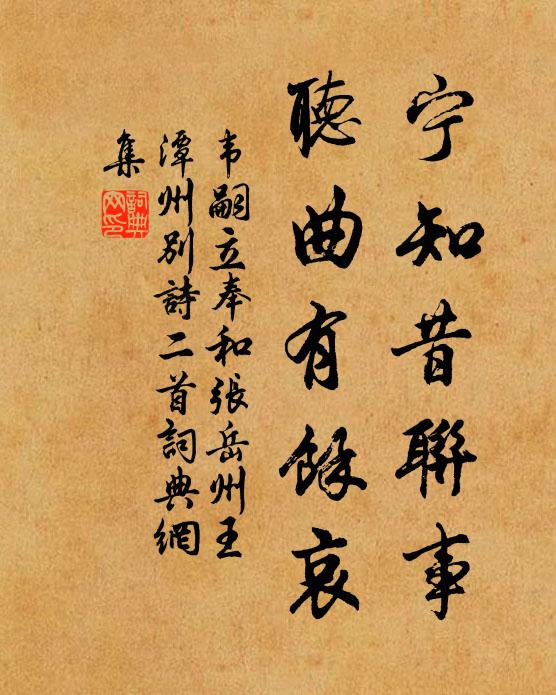 宁知昔聯事
聽曲有餘哀
韦嗣立奉和張岳州王
潭州别詩二首詞典網
集
詞典
网印